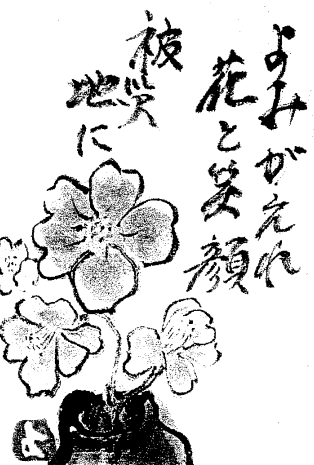 よみがえれ
花と笑顔
被災
地に